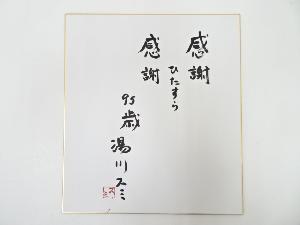 感謝
ひたすら
感謝
95歳 湯川スミ